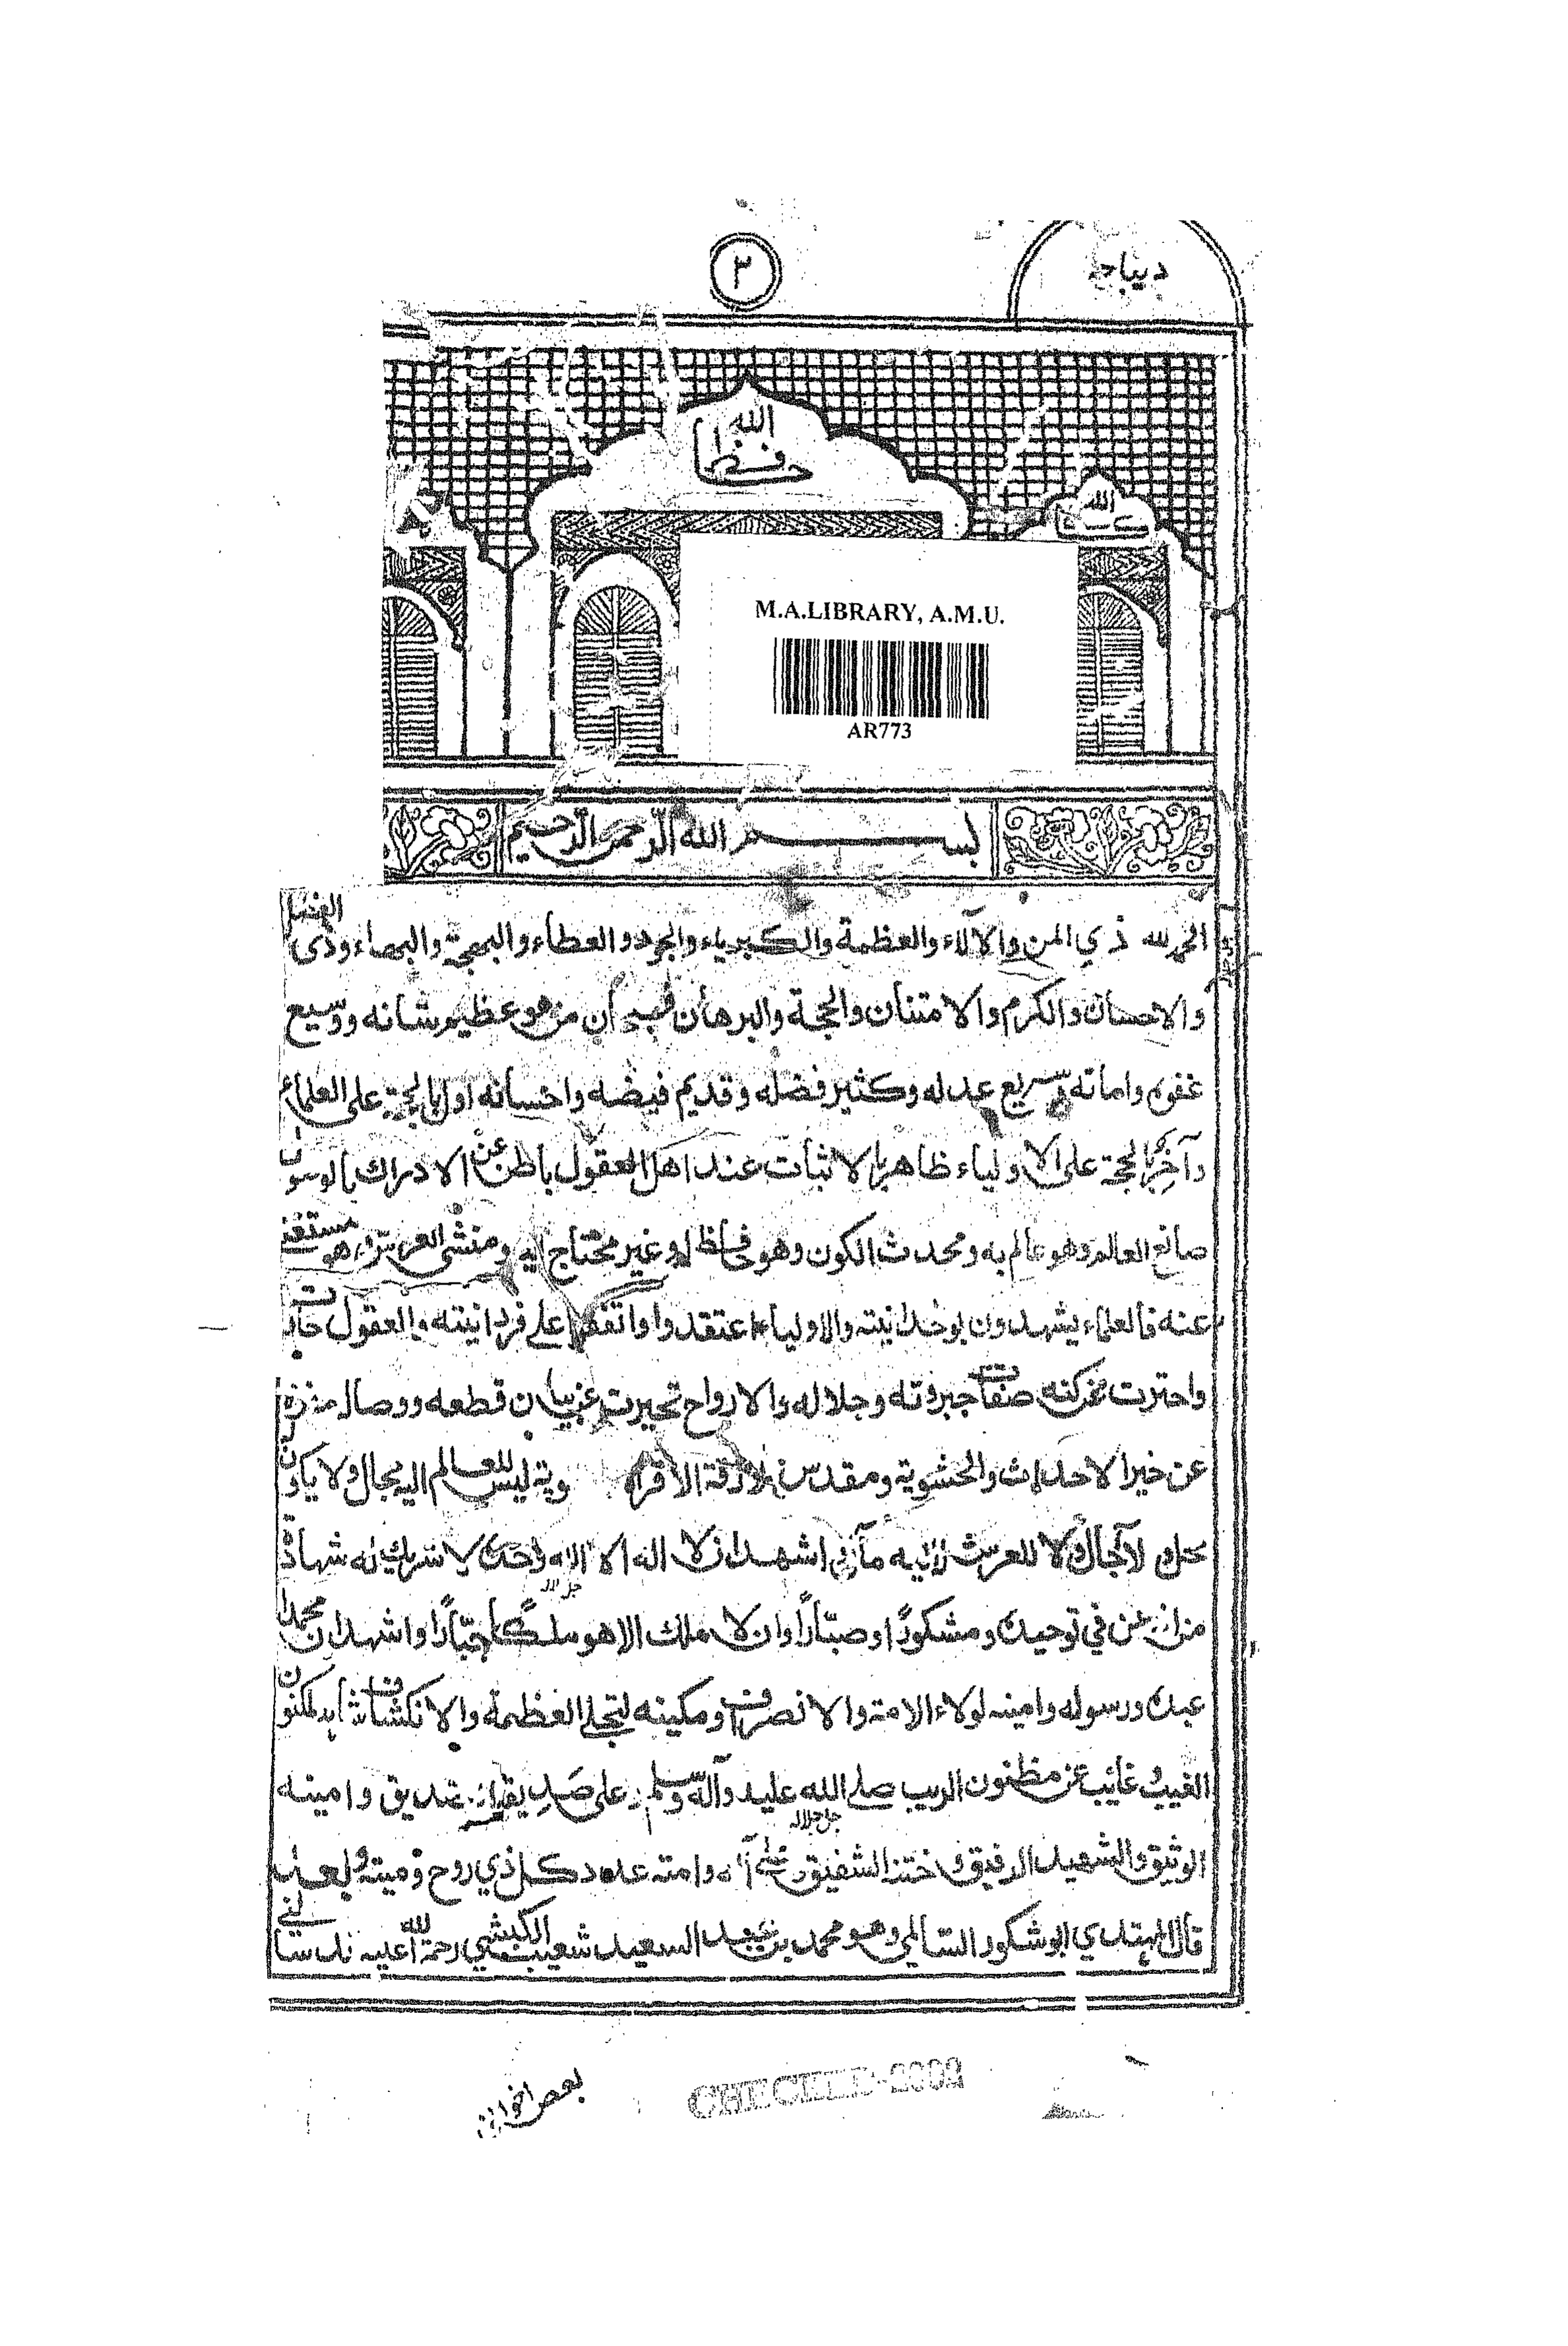 ديباجه
٢
الله
حافظا
الله
M.A.LIBRARY, A.M.U.
AR773
بسم الله الرحمن الرحيم
الحمد لله ذي المن والآلاء والعظمة والكبرياء والجود والعطاء والبهجة والبهاء وذي الفضل
والاحسان والكرم والامتنان والحجة والبرهان فسبحان من هو عظيم شانه ووسيع
غفوه وامانه وسريع عدله وكثير فضله وقديم فيضه واحسانه اول بالحجة على العلماء
وآخر بالحجة على الاولياء ظاهر بالاثبات عند اهل العقول باطن عن الادراك بالوسواس
صانع العالم وهو عالم به ومحدث الكون وهو حافظ له وغير محتاج اليه ومنشئ العرش وهو مستغنى
عنه فالعلماء يشهدون بوحدانيته والاولياء اعتقدوا واتفقوا على فردانيته والعقول حارت
واحترت عن كنه صفات جبروته وجلاله والارواح تحيرت عن بيان قطعه ووصاله منزه
عن خير الاحداث والحشوية ومقدس ليس للعالم اليه مجال ولا يكون
لآجال ولا للعرش اشهد ان لا اله الا الله وحده لا شريك له شهادة
في توحيده ومشكورًا وصبّارًا وان لا ملك الا هو ملكًا جبّارًا واشهد ان محمدا
جل جلاله
عبده ورسوله وامينه لولاء الامة والانصراف ومكينه لتجلى العظمة والانكشاف شاهد لمكنون
الغيب وغائب عن مظنون الريب صلى الله عليه وآله وسلم على صديق وامينه
جل جلاله
الوثيق والشهيد الرفيق وختنه الشفيق وامته عدد كل ذي روح وميته وبعد
قال المهتدي ابو شكور السالمي وهو محمد بن عبد السعيد شعيب الكبشي رحمة الله عليه قد سألني
بعض اخواني
CHECKED-2002